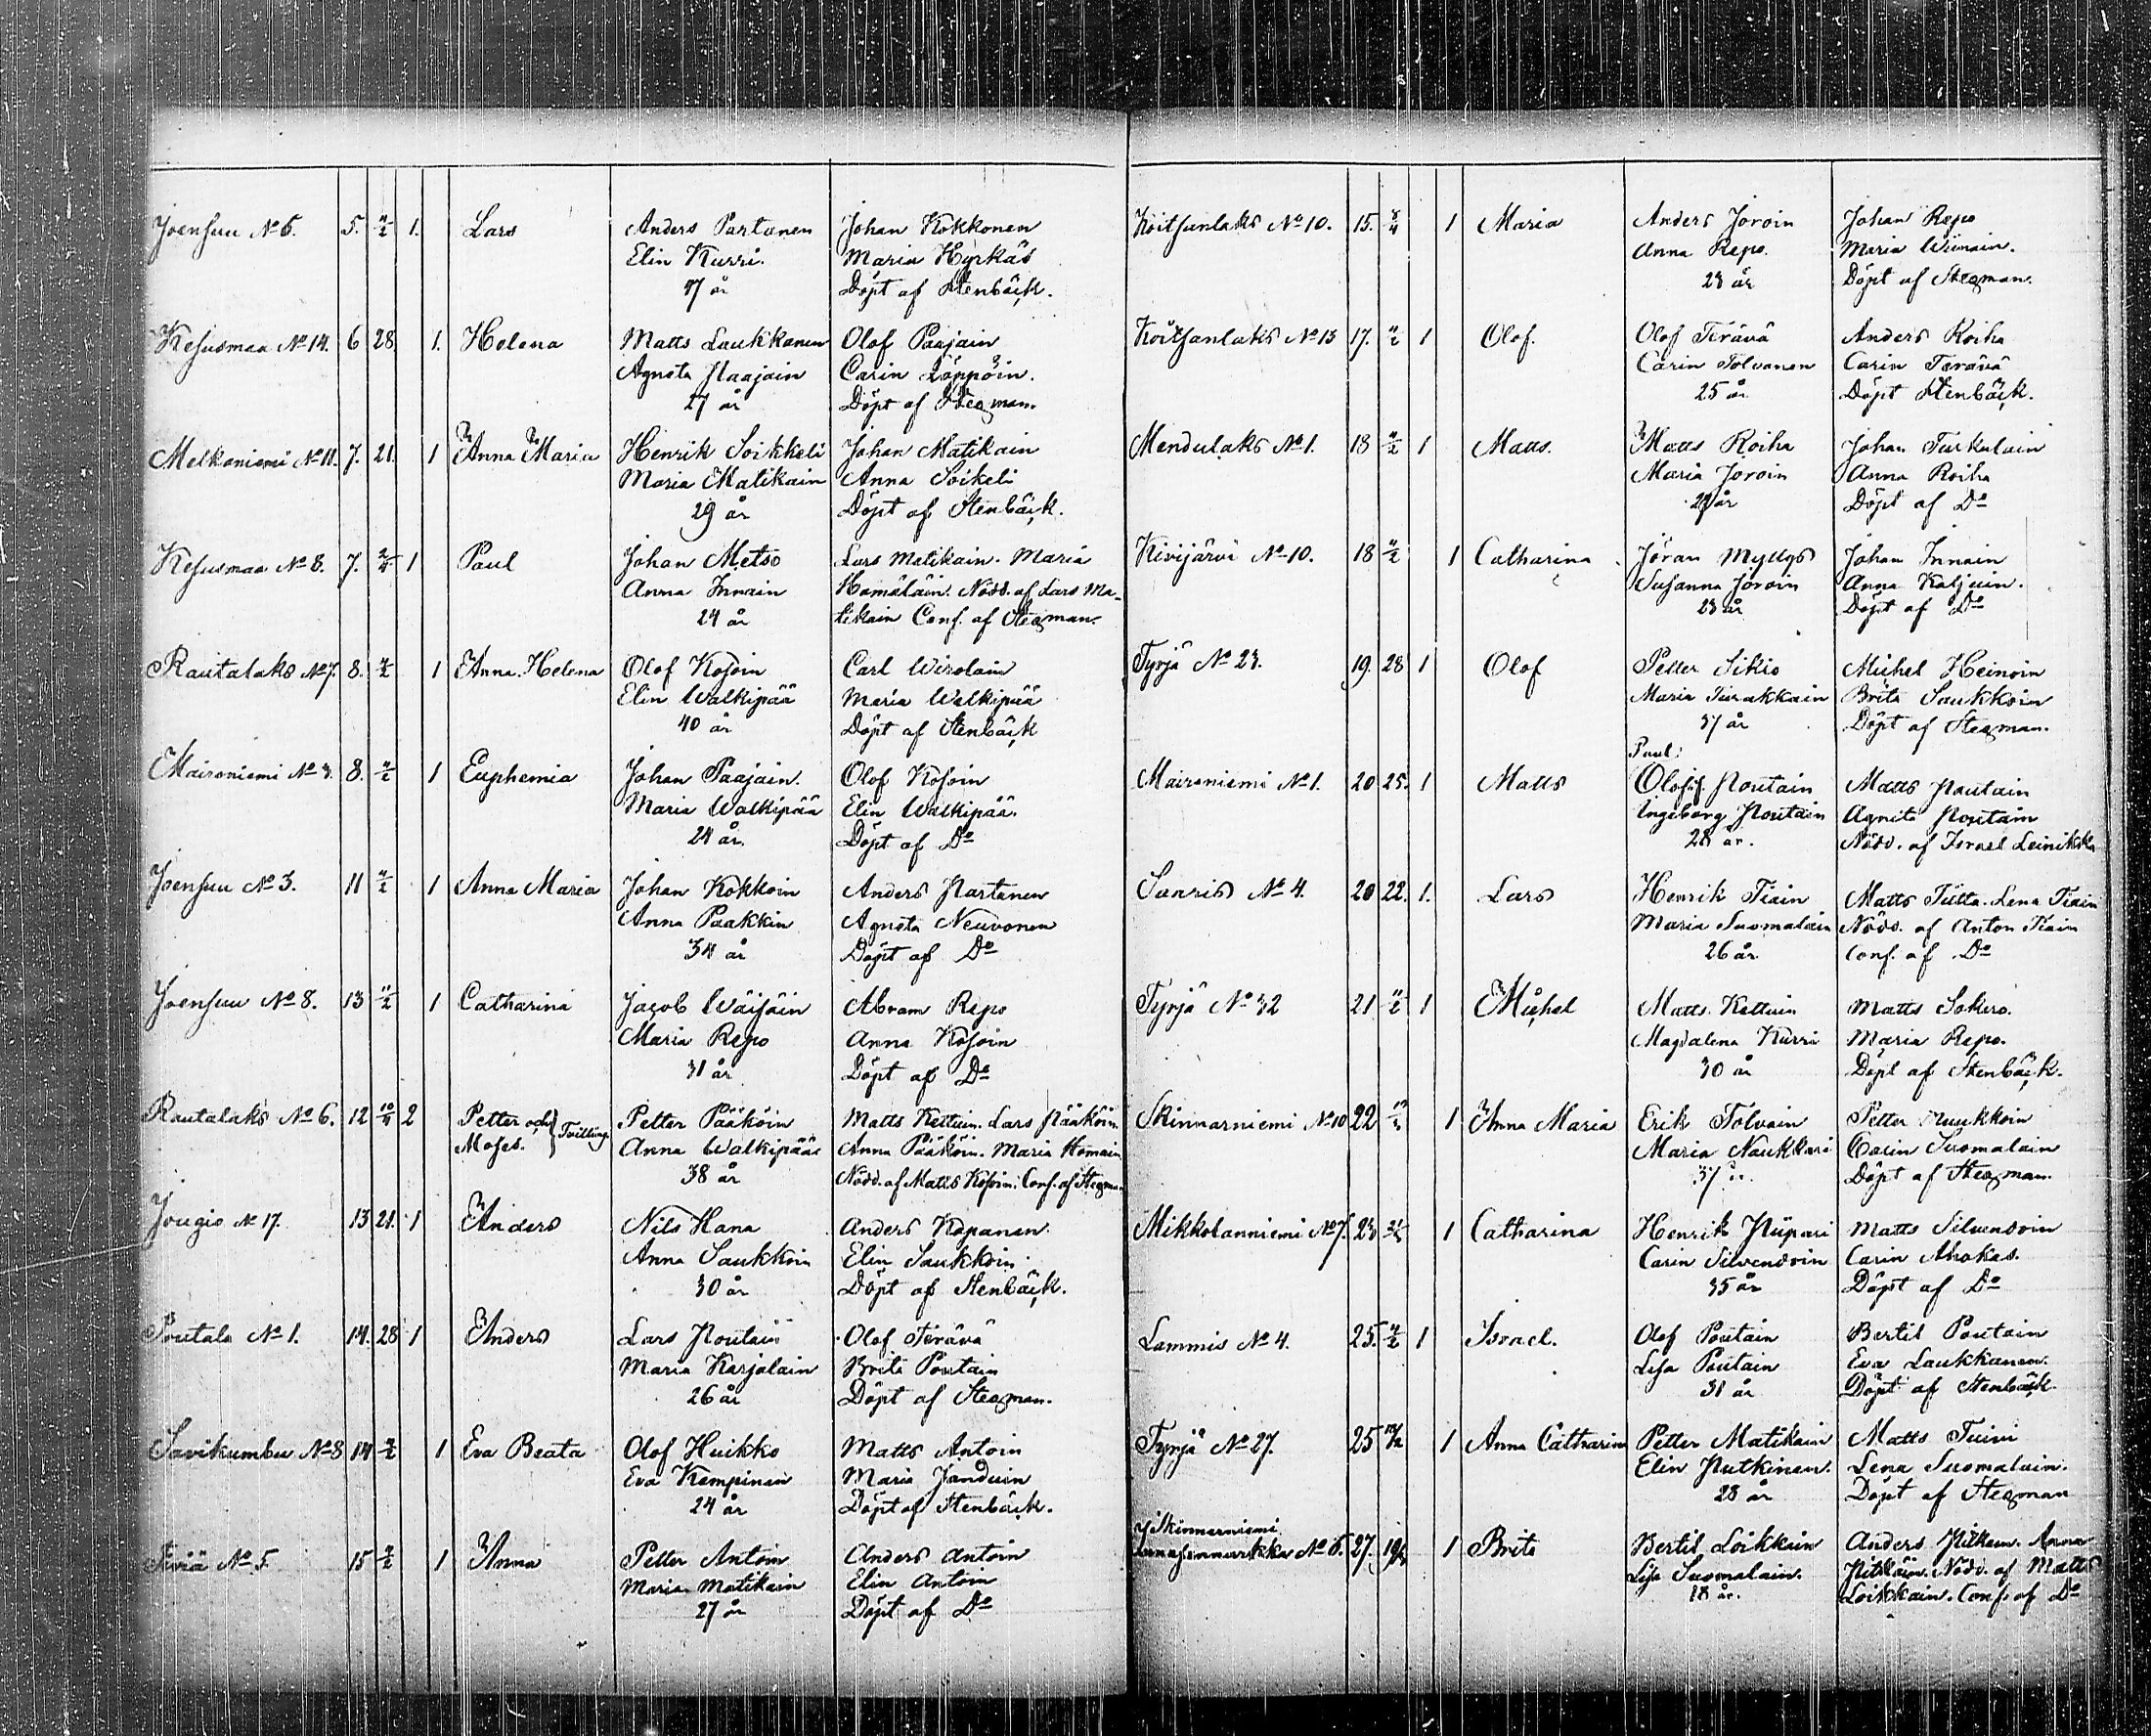 Joensuu No 6. 5. 4/2 1. Lars Anders Partanen Johan Kokkonen
Elin Kurri. Maria Hyrkäs
47 år Döpt af Stenbäck.
Kesusmaa No 14. 6 28 1. Helena Matts Laukkanen Olof Paajain
Agneta Paajain Carin Löppöin.
27 år Döpt af Stegman.
Melkoniemi No 11. 7. 21. 1 Anna Maria Henrik Soikkeli Johan Matikain
Maria Matikain Anna Soikeli
29 år Döpt af Stenbäck.
Kesusmaa No 8. 7. 1 Paul Johan Metso Lars Matikain. Maria
Anna Innain Hämäläin. Nödd. af Lars Ma-
24 år tikain Conf. af Stegman.
Rautalaks No 7. 8. 4/2 1 Anna Helena Olof Kosoin Carl Wirolain
Elin Walkipää Maria Walkipää
40 år Döpt af Stenbäck
Maironiemi No 3. 8. 4/2 1 Euphemia Johan Paajain. Olof Kosoin
Maria Walkipää Elin Walkipää.
24 år. Döpt af Do
Joensuu No 3. 11 4/2 1 Anna Maria Johan Kokkoin Anders Partanen
Anna Paakkin Agneta Neuvonen
34 år Döpt af Do
Joensuu No 8. 13 1 Catharina Jacob Wäisäin Abram Repo
Maria Repo Anna Kosoin
31 år Döpt af Do
Rautalaks No 6. 12 2 Petter och Petter Pääköin Matts Kettuin. Lars Pääköin
Moses. Tvilling. Anna Walkipää Anna Pääköin. Maria Homain
38 år Nödd. af Matts Kosoin. Conf. af Stegman
Jougio No 17. 13 21. 1 Anders Nils Hana Anders Kopanen.
Anna Saukkoin Elin Saukkoin
30 år Döpt af Stenbäck.
Poutala No 1. 14. 28 1 Anders Lars Poutain Olof Terävä
Maria Karjalain Brita Poutain
26 år Döpt af Stegman.
Savikumbu No 8 14 1 Eva Beata Olof Huikko Matts Antoin
Eva Kempinen Maria Janduin
24 år Döpt af Stenbäck.
No 5. 15 1 Anna Petter Antoin Anders Antoin
Maria Matikain Elin Antoin
27 år Döpt af Do
Koitsanlaks No 10. 15. 1 Maria Anders Joroin Johan Repo
Anna Repo. Maria Wiinain.
23 år Döpt af Stegman.
Koitsanlaks No 13 17. 4/2 1 Olof. Olof Terävä Anders Roiha
Carin Tolvanen Carin Terävä
25 år Döpt Stenbäck.
Mendulaks No 1. 18 4/2 1 Matts. Matts Roiha Johan Turkulain
Maria Joroin Anna Roiha
år Döpt af Do
Kivijärvi No 10. 18 4/2 1 Catharina Jöran Myllys Johan Innain
Susanna Joroin Anna Kaljuin.
23 år Döpt af Do
Tyrjä No 23. 19. 28 1 Olof Petter Sikio Michel Heinoin
Maria Turakkain Brita Saukkoin
37 år Döpt af Stegman.
Paul:
Maironiemi No 1. 20 25. 1 Matts Olofs. Poutain Matts Poutain
Ingeborg Poutain Agnita Poutain
28 år. Nödd. af Israel Leinikka
Saaris No 4. 20 22. 1. Lars Henrik Tiain Matts Tiitta. Lena Tiain
Maria Suomalain Nödd. af Anton Tiain
26 år Conf. af Do
Tyrjä No 32 21 1 Michel Matts Kettuin Matts Sokiro.
Magdalena Kurri Maria Repo.
30 år Döpt af Stenbäck.
Skinnarniemi No 10 22 1 Anna Maria Erik Tolvain Petter Muukkoin
Maria Naukkari Carin Suomalain
37 Döpt af Stegman.
Mikkolanniemi No 7. 23 1 Catharina Henrik Piipari Matts Silvendoin
Carin Silvendoin Carin Ahokas.
35 år Döpt af Do
Lammis No 4. 25. 4/2 1 Israel. Olof Poutain Bertil Poutain
Lisa Poutain Eva Laukkanen.
31 år Döpt af Stenbäck
Tyrjä No 27. 25 1 Anna Catharina Petter Matikain Matts Tuim
Elin Putkinen. Lena Suomalain.
28 år Döpt af Stegman
Skinnarniemi
No 6. 27. 1 Brita Bertil Loikkain Anders Pitkain. Anna
Lisa Suomalain. Pitkäin. Nödd. af Matts
18 år. Loikkain. Conf. af Do